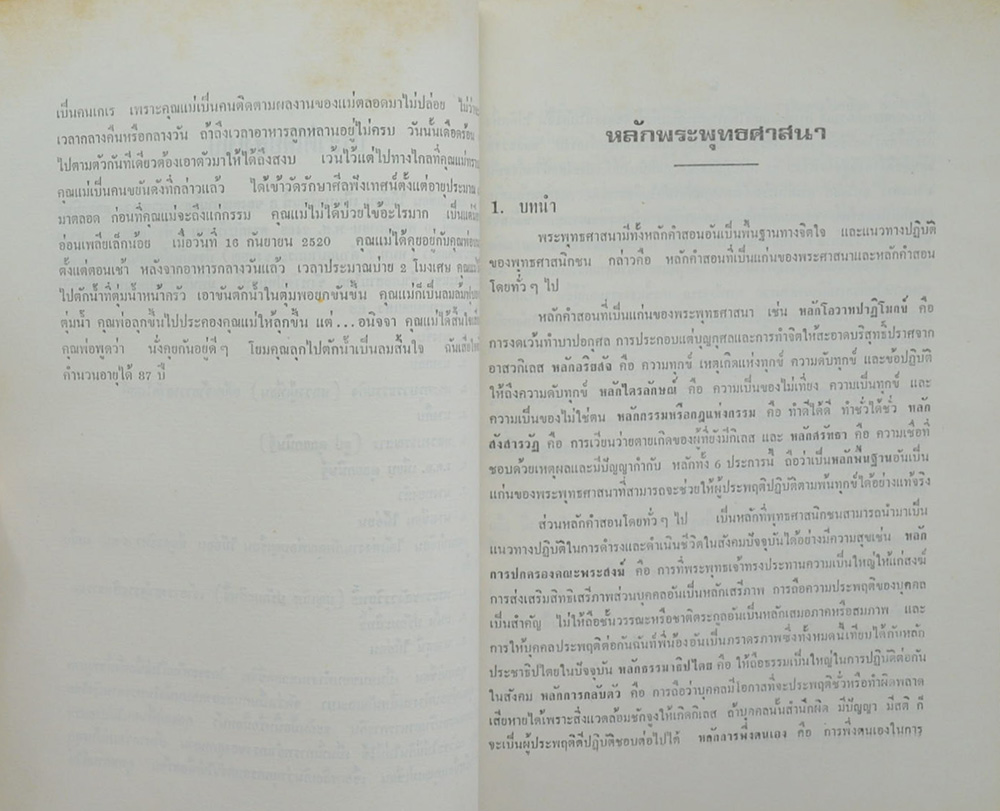 เป็นคนเกเร เพราะคุณแม่เป็นคนติดตามผลงานของแม่ตลอดมาไม่ปล่อย ไม่ว่า
เวลากลางคืนหรือกลางวัน ถ้าถึงเวลาอาหารลูกหลานอยู่ไม่ครบ วันนั้นเดือดร้อน
ไปตามตัวกันทีเดียวต้องเอาตัวมาให้ได้ถึงสงบ เว้นไว้แต่ไปทางไกลที่คุณแม่ทราบ
คุณแม่เป็นคนขยันดังที่กล่าวแล้ว ได้เข้าวัดรักษาศีลฟังเทศน์ตั้งแต่อายุประมาณ
มาตลอด ก่อนที่คุณแม่จะถึงแก่กรรม คุณแม่ไม่ได้ป่วยไข้อะไรมาก เป็นแต่
อ่อนเพลียเล็กน้อย เมื่อวันที่ 16 กันยายน 2520 คุณแม่ได้คุยอยู่กับคุณพ่อ
ตั้งแต่ตอนเช้า หลังจากอาหารกลางวันแล้ว เวลาประมาณบ่าย 2 โมงเศษ คุณแม่
ไปตักน้ำที่ตุ่มน้ำหน้าครัว เอาขันตักน้ำในตุ่มพอยกขันขึ้น คุณแม่ก็เป็นลมล้ม
ตุ่มน้ำ คุณพ่อลุกขึ้นไปประคองคุณแม่ให้ลุกขึ้น แต่...อนิจจา คุณแม่ได้สิ้นใจ
คุณพ่อพูดว่า นั่งคุยกันอยู่ดีๆ โยมคุณลุกไปตักน้ำเป็นลมสิ้นใจ
คำนวณอายุได้ 87 ปี
หลักพระพุทธศาสนา
1. บทนำ
พระพุทธศาสนามีทั้งหลักคำสอนอันเป็นพื้นฐานทางจิตใจ และแนวทางปฏิบัติ
ของพุทธศาสนิกชน กล่าวคือ หลักคำสอนที่เป็นแก่นของพระศาสนาและหลักคำสอน
โดยทั่ว ๆ ไป
หลักคำสอนที่เป็นแก่นของพระพุทธศาสนา เช่น หลักโอวาทปาฏิโมกข์ คือ
การงดเว้นทำบาปอกุศล การประกอบแต่บุญกุศลและการทำจิตให้สะอาดบริสุทธิ์ปราศจาก
อาสวกิเลส หลักอริสัจ คือ ความทุกข์ เหตุเกิดแห่งทุกข์ ความดับทุกข์ และข้อปฏิบัติ
ให้ถึงความดับทุกข์ หลักไตรลักษณ์ คือ ความเป็นของไม่เที่ยง ความเป็นทุกข์ และ
ความเป็นของไม่ใช่ตน หลักกรรมหรือกฎแห่งกรรม คือ ทำดีได้ดี ทำชั่วได้ชั่ว หลัก
สังสารวัฏ คือ การเวียนว่ายตายเกิดของผู้ที่ยังมีกิเลส และ หลักศรัทธา คือ ความเชื่อที่
ชอบด้วยเหตุผลและมีปัญญากำกับ หลักทั้ง 6 ประการนี้ ถือว่าเป็นหลักพื้นฐานอันเป็น
แก่นของพระพุทธศาสนาที่สามารถจะช่วยให้ผู้ประพฤติปฏิบัติตามพ้นทุกข์ได้อย่างแท้จริง
ส่วนหลักคำสอนโดยทั่ว ๆ ไป เป็นหลักที่พุทธศาสนิกชนสามารถนำมาเป็น
แนวทางปฏิบัติในการดำรงและดำเนินชีวิตในสังคมปัจจุบันได้อย่างมีความสุขเช่น หลัก
การปกครองคณะพระสงฆ์ คือ การที่พระพุทธเจ้าทรงประทานความเป็นใหญ่ให้แก่สงฆ์
การส่งเสริมสิทธิเสรีภาพส่วนบุคคลอันเป็นหลักเสรีภาพ การถือความประพฤติของบุคคล
เป็นสำคัญ ไม่ให้ถือชั้นวรรณะหรือชาติตระกูลอันเป็นหลักเสมอภาคหรือสมภาพ และ
การให้บุคคลประพฤติต่อกันฉันท์พี่น้องอันเป็นภราดรภาพซึ่งทั้งหมดนี้เทียบได้กับหลัก
ประชาธิปไตยในปัจจุบัน หลักธรรมาธิปไตย คือ ให้ถือธรรมเป็นใหญ่ในการปฏิบัติต่อกัน
ในสังคม หลักการกลับตัว คือ การถือว่าบุคคลมีโอกาสที่จะประพฤติชั่วหรือทำผิดพลาด
เสียหายได้เพราะสิ่งแวดล้อมชักจูงให้เกิดกิเลส ถ้าบุคคลนั้นสำนึกผิด มีปัญญา มีสติ ก็
จะเป็นผู้ประพฤติดีปฏิบัติชอบต่อไปได้ หลักการพึ่งตนเอง คือ การพึ่งตนเองในการ